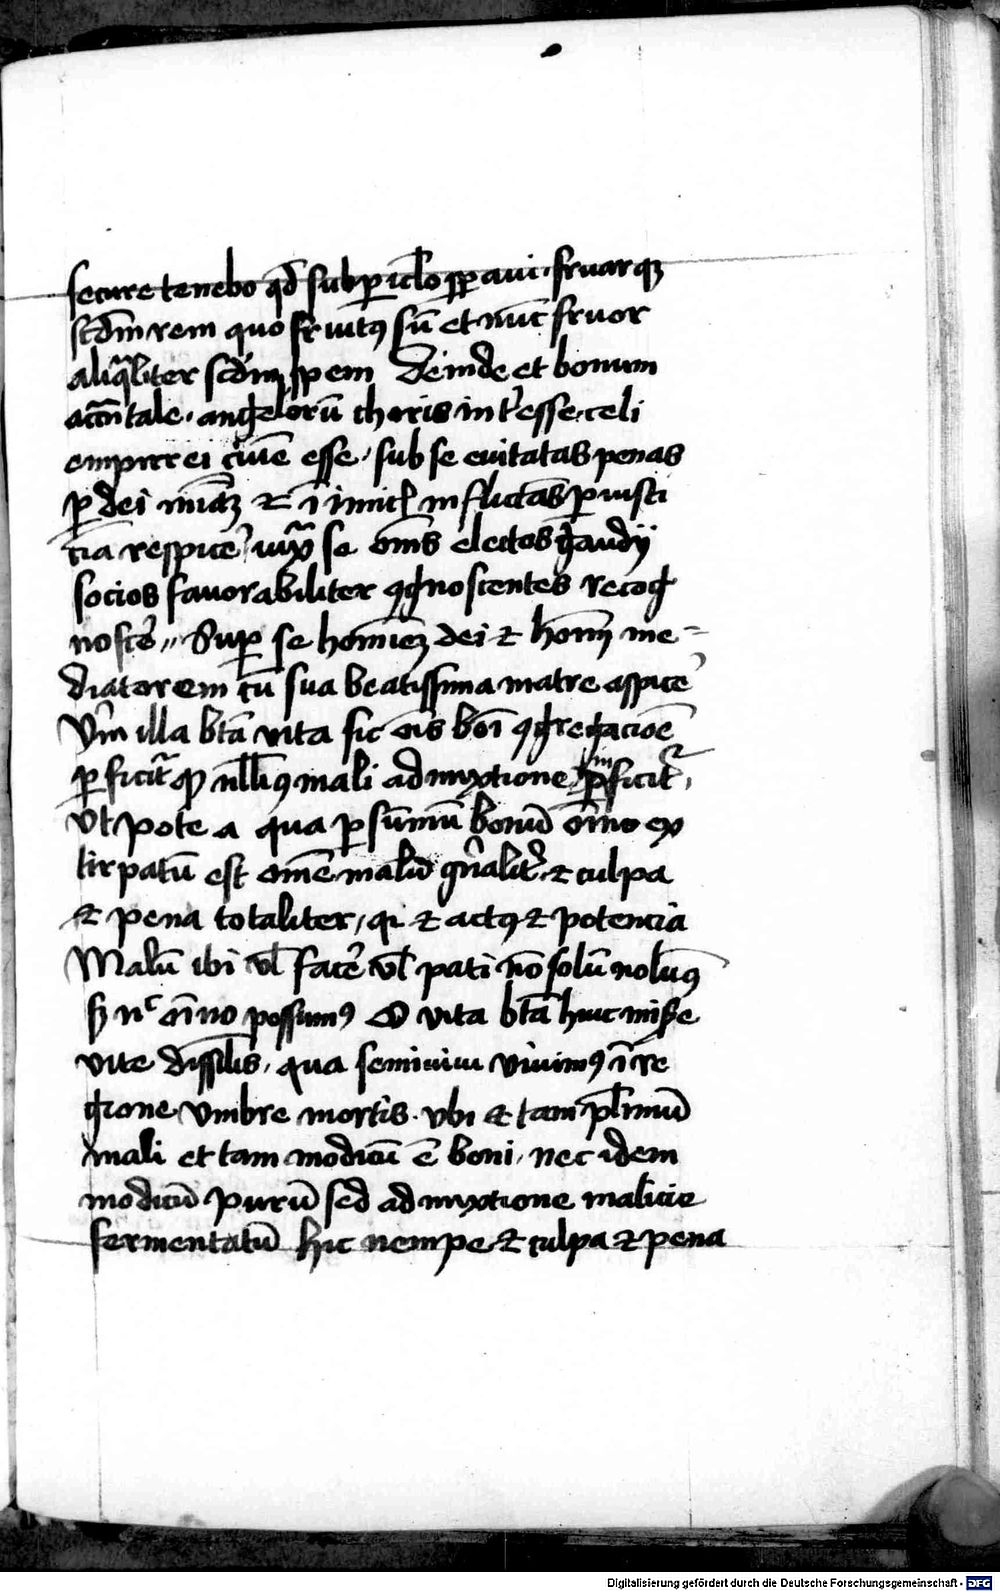 secure tenebo qd̄ sub ꝑiclo sꝑaui · fruarqꝫ
scd̄m rem quo fruitꝰ sū et nūc fruor
aliqͣliter scd̄m spem Deinde et bonum
accn̄tale · angelorū choris int̾esse · celi
empirrei ciuē esse / sub se euitatas penas
ꝑ dei miāꝫ ⁊ inflictas ꝑ iusti
ciā respice̾ / iuxͣ se om̄s electos gaudij
socios fauorabiliter ꝯgnoscentes recog
nosce̾ // Suꝑ se homīeꝫ dei ⁊ homī me-
diatorem cū sua beatissima matre aspice̾
Vn̄ illa btā vita sic oīs boī ꝯgregacioē
ꝑficit᷑ ꝙ nllīꝰ mali admyxtione īꝑficit᷑ /
Vtpote a qua ꝑ sūmū bonū oīno ex
tirpatū est omē malū gn̄alit̾ ⁊ culpa
⁊ pena totaliter / qi ⁊ actꝰ ⁊ potencia
Malū ibi vl̄ face̾ vl̄ pati nō solū nolumꝰ
sꝫ nͨ oīno possumꝰ O vita btā huic mise̾
vite dissilis / qua semiuiui viuimꝰ ī re
gione vmbre mortis · vbi ⁊ tam pl̄imū
mali et tam modicū ē boni / nec idem
modicū purū sed admyxtione malicie
fermentatū hic nempe ⁊ culpa ⁊ pena
Digitalisierung gefördert durch die Deutsche Forschungsgemeinschaft - DFG